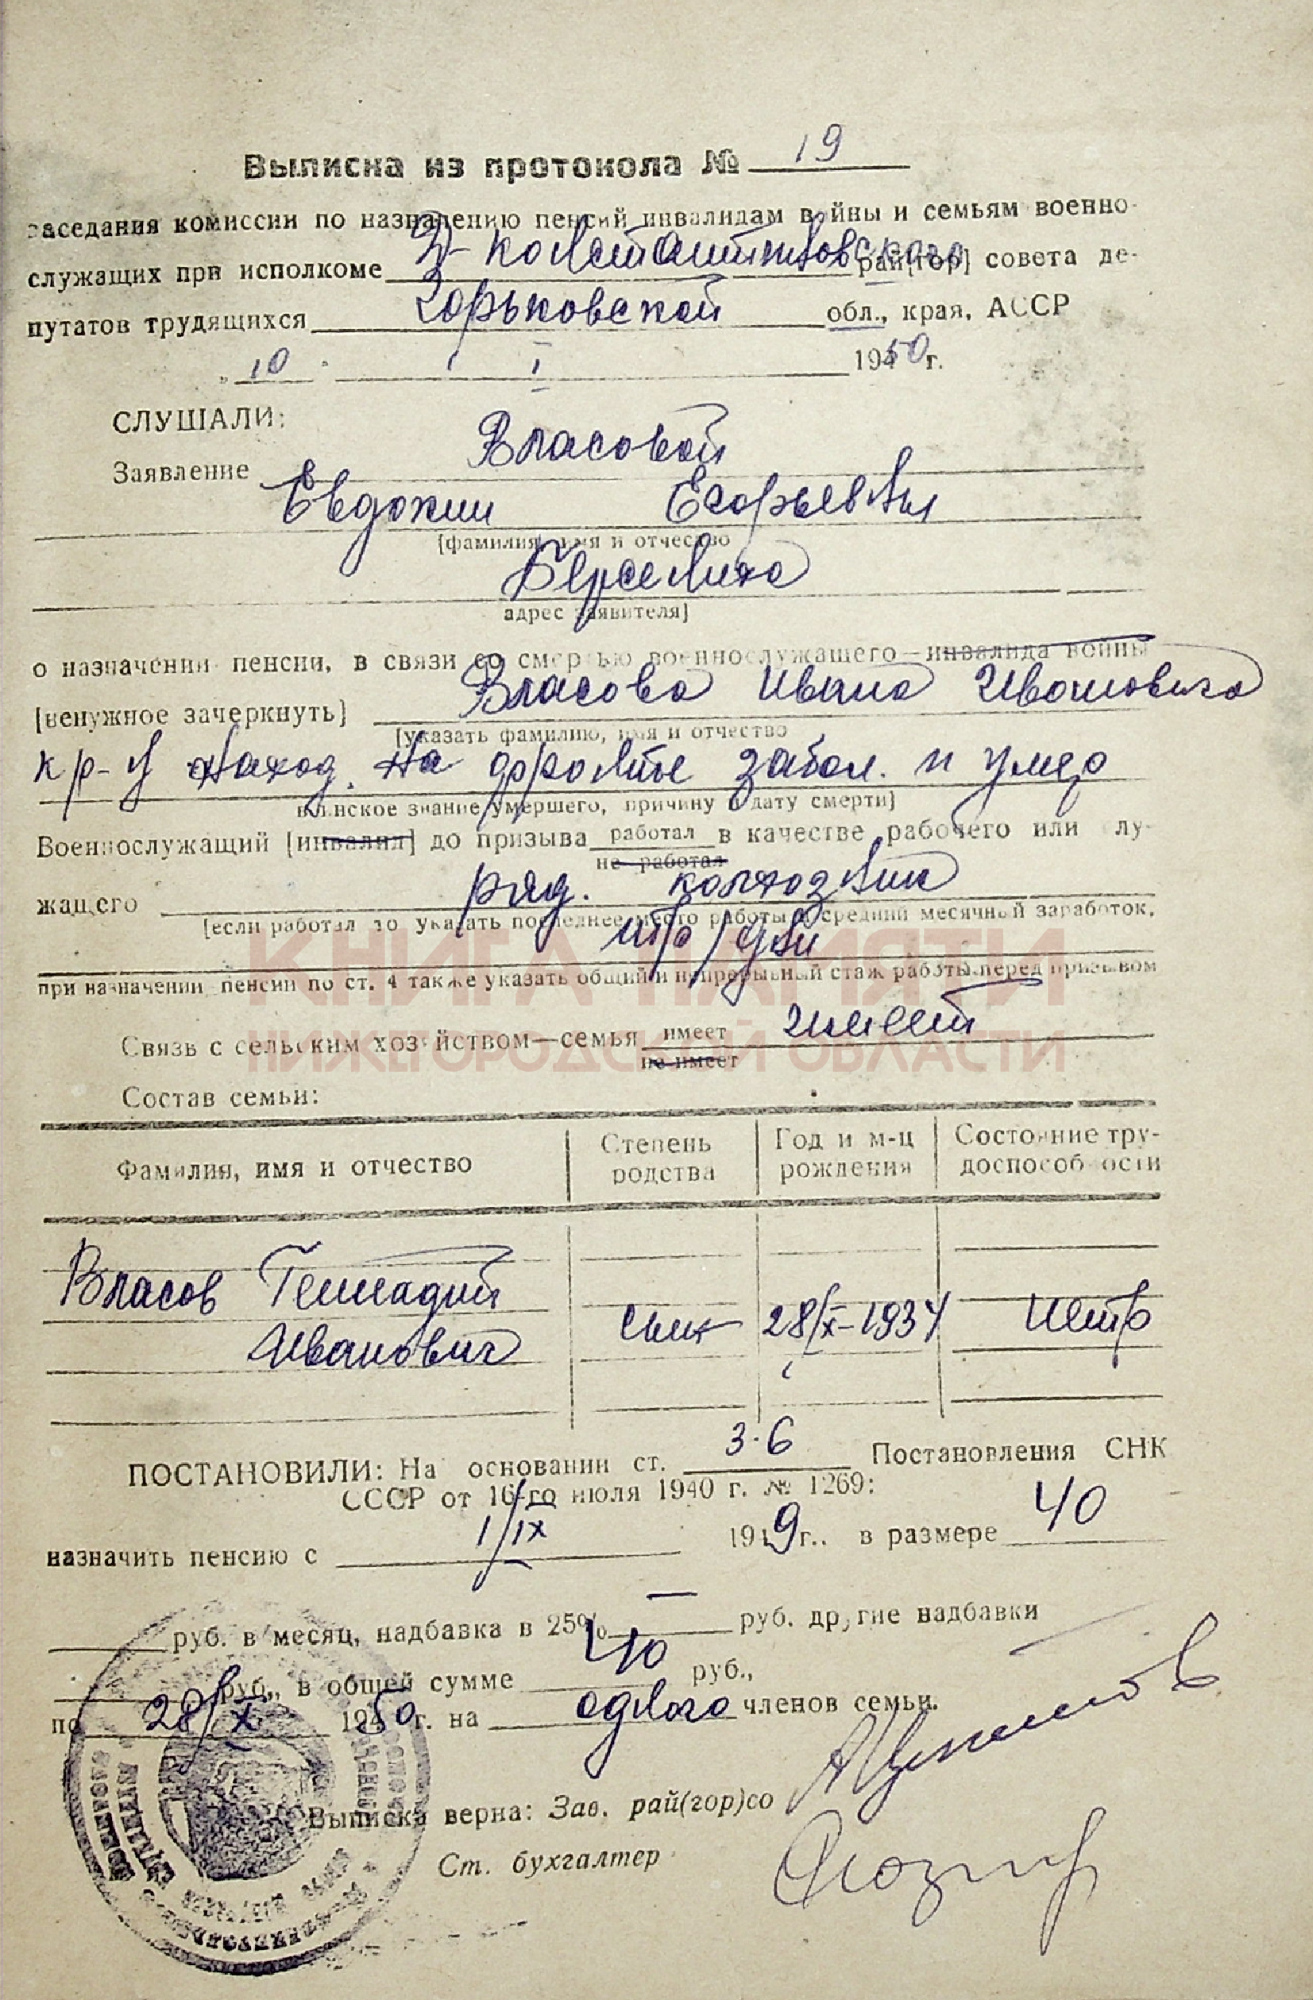 Выписка из протокола № 19
заседания комиссии по назначению пенсий инвалидам войны и семьям военно-
служащих при исполкоме Д-Константиновского рай[гор] совета де-
путатов трудящихся Горьковской обл., края, АССР
„10" I 1950 г.
СЛУШАЛИ:
Заявление Власовой
Евдокии Егорьевны
[фамилия, имя и отчество
Берсениха
адрес заявителя]
о назначении пенсии, в связи со смертью военнослужащего—инвалида войны
[ненужное зачеркнуть] Власова Ивана Ивановича
[указать фамилию, имя и отчество
кр-ц наход. на фронте забол. и умер
воинское звание умершего, причину и дату смерти]
Военнослужащий [инвалид] до призыва работал в качестве рабочего или слу-
не работал
жащего ряд. колхозник
[если работал то указать последнее место работы и средний месячный заработок,
тр/дни
при назначении пенсии по ст. 4 также указать общий и непрерывный стаж работы перед призывом
КНИГА ПАМЯТИ
НИЖЕГОРОДСКОЙ ОБЛАСТИ
Связь с сельским хозяйством—семья имеет имеет
не имеет
Состав семьи:
Фамилия, имя и отчество Степень родства Год и м-ц рождения Состояние тру-доспособности
Власов Геннадий
Иванович сын 28/X-1934 нетр
ПОСТАНОВИЛИ: На основании ст. 3-6 Постановления СНК
СССР от 16-го июля 1940 г. № 1269:
назначить пенсию с 1/IX 1949 г.. в размере 40
руб. в месяц, надбавка в 25% — руб. другие надбавки
руб., в общей сумме 40 руб.,
по 28/X 1950 г. на одного членов семьи.
Выписка верна: Зав. рай(гор)со
Ст. бухгалтер